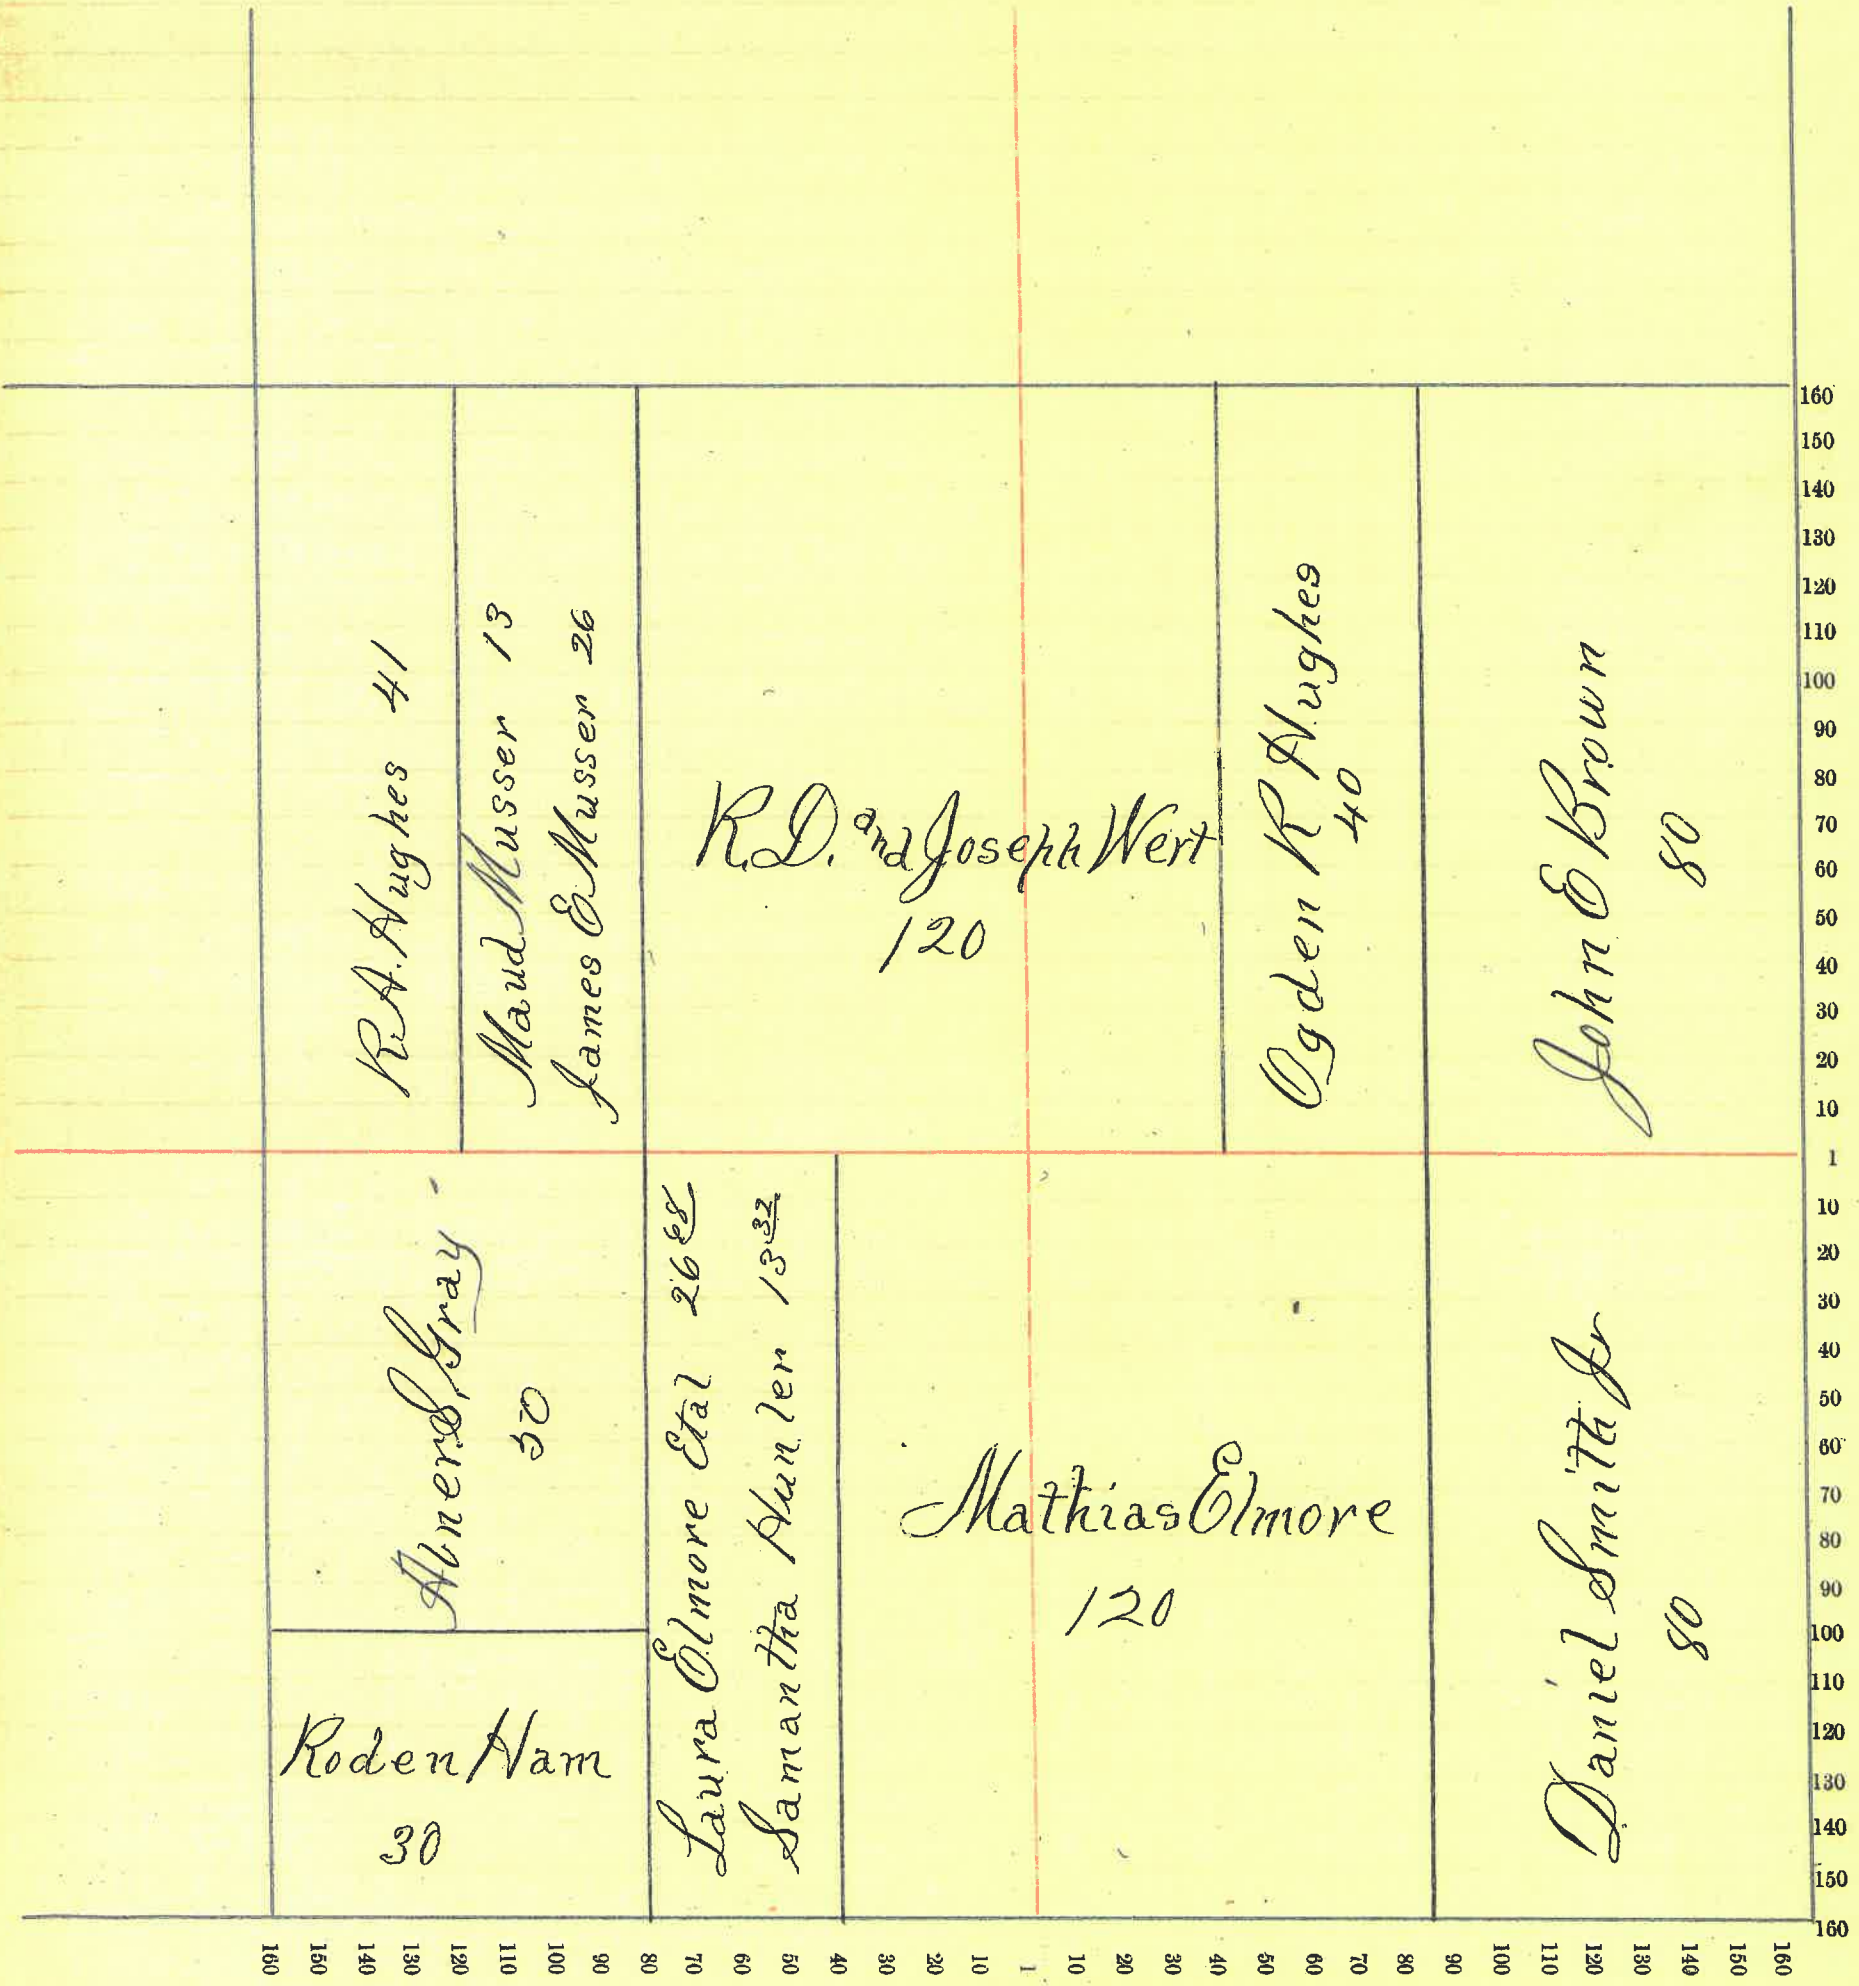 R.A. Hughes 41
Maud Musser 13
James E Musser 26
R.D. and Joseph Wert
120
Ogden R Hughes
40
John E Brown
80
Abner S, Gray
50
Roden Ham
30
Laura Elmore Etal 26 68
Samantha 13 32
Mathias Elmore
120
Daniel Smith Jr
80
160
150
140
130
120
110
100
90
80
70
60
50
40
30
20
10
1
10
20
30
40
50
60
70
80
90
100
110
120
130
140
150
160
160 150 140 130 120 110 100 90 80 70 60 50 40 30 20 10 1 10 20 30 40 50 60 70 80 90 100 110 120 130 140 150 160